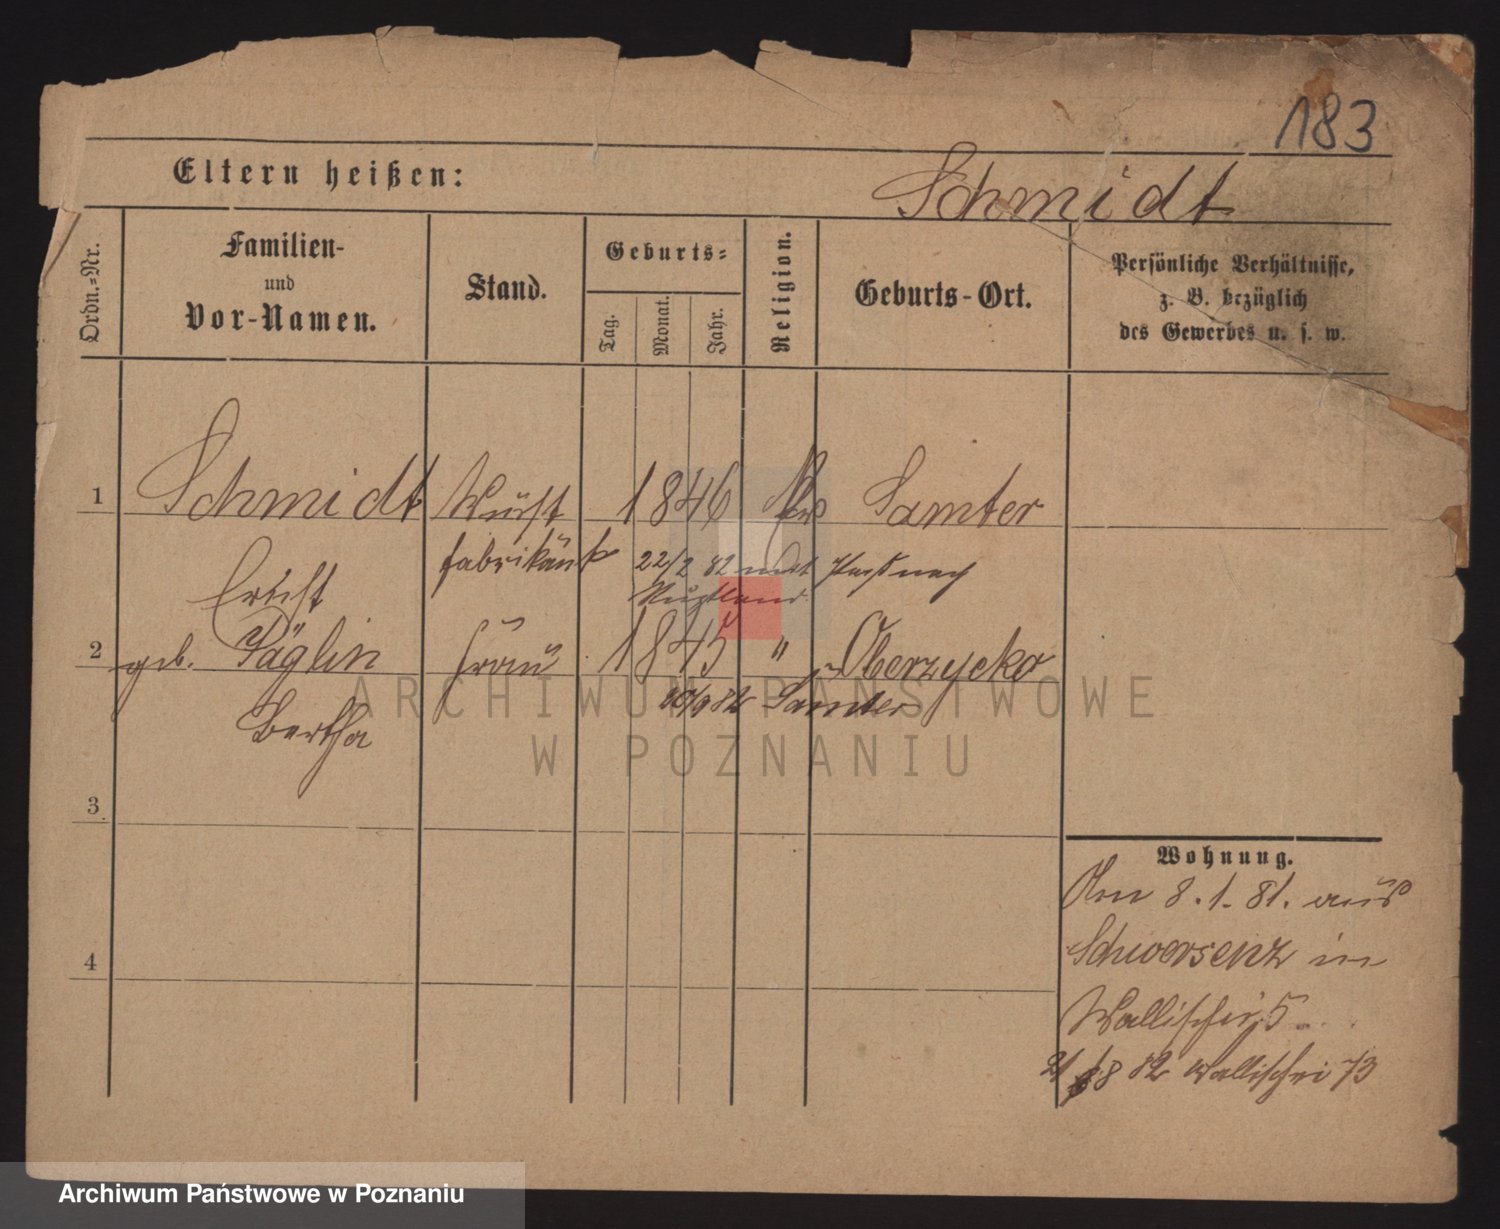 183
Eltern heißen:
Schmidt
Ordn.-Nr.
Familien-
und
Vor-Namen.
Stand.
Geburts-
Tag.
Monat.
Jahr.
Religion.
Geburts-Ort.
Persönliche Verhältnisse,
z. B. bezüglich
des Gewerbes u. s. w.
1 Schmidt Wurst 1846 Samter
fabrikant 22/2 82 mit Paß nach
Rußland
2 geb. Päglin Frau 1845 " Obersycko
Bertha 82 Samter
3
4
Wohnung.
Am 8.1.81. aus
Schwersenz in
Wallischei 5
21/8 82 Wallischei 73
ARCHIWUM PAŃSTWOWE
W POZNANIU
Archiwum Państwowe w Poznaniu